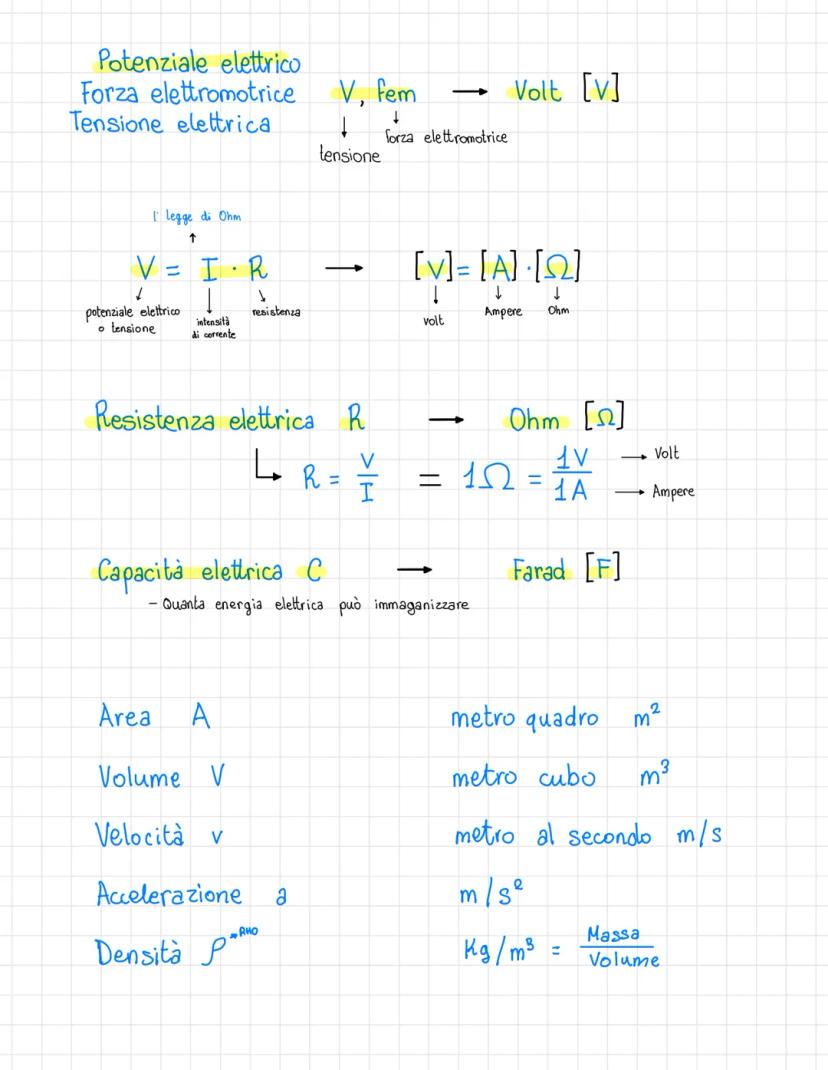 Potenziale elettrico
Forza elettromotrice V, fem → Volt [V]
Tensione elettrica
↓ ↓
forza elettromotrice
tensione
1ª legge di Ohm
↑
V = I · R → [V] = [A] · [Ω]
potenziale elettrico o tensione
intensità di corrente
resistenza
volt
Ampere
Ohm
Resistenza elettrica R → Ohm [Ω]
↳ R = V/I = 1Ω = 1V/1A
→ Volt
→ Ampere
Capacità elettrica C → Farad [F]
- Quanta energia elettrica può immaganizzare
Area A metro quadro m²
Volume V metro cubo m³
Velocità v metro al secondo m/s
Accelerazione a m/s²
Densità ρ RHO Kg/m³ = Massa/Volume